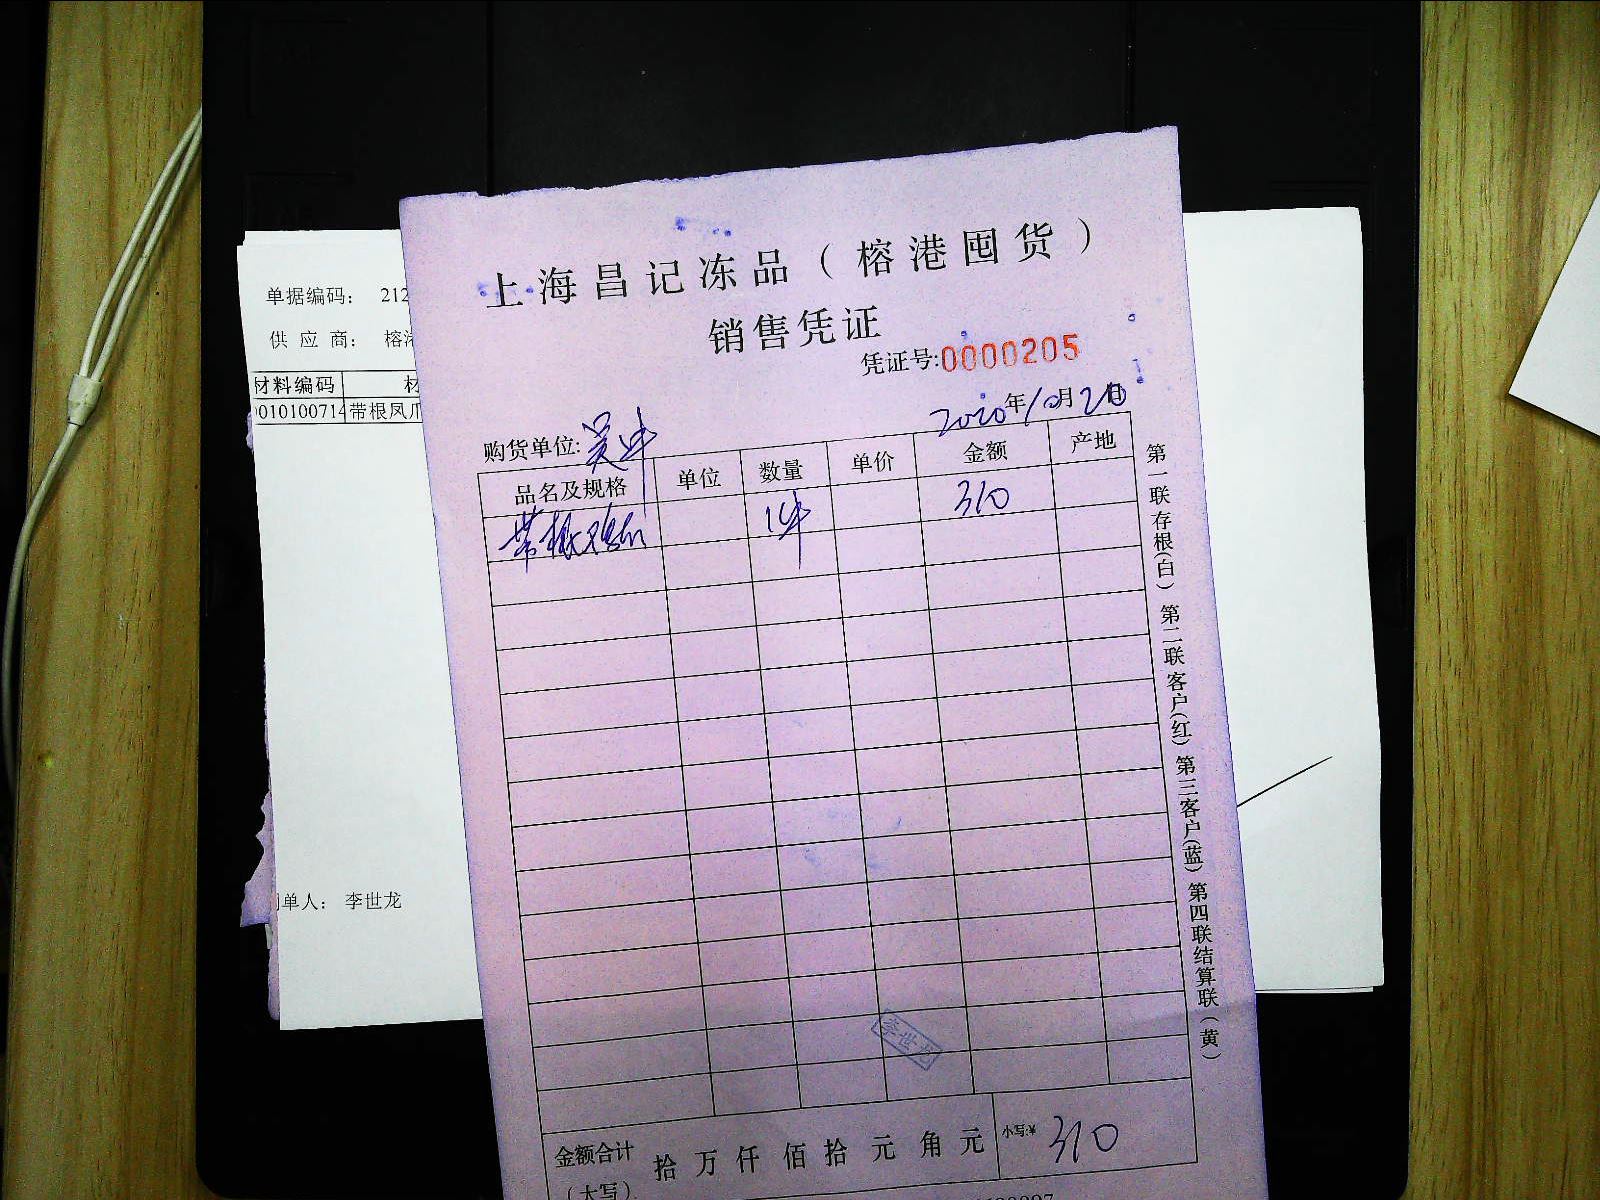 上海昌记冻品（榕港囤货）
销售凭证
凭证号:0000205
2020年10月20日
购货单位:吴中
品名及规格 单位 数量 单价 金额 产地
带根鸡爪 1件 310
金额合计（大写） 拾 万 仟 佰 拾 元 角 元 小写:¥ 310
第一联存根(白) 第二联客户(红) 第三客户(蓝) 第四联结算联(黄)
李世龙
单据编码： 212
供 应 商： 榕港
材料编码 材
010100714 带根凤爪
单人： 李世龙